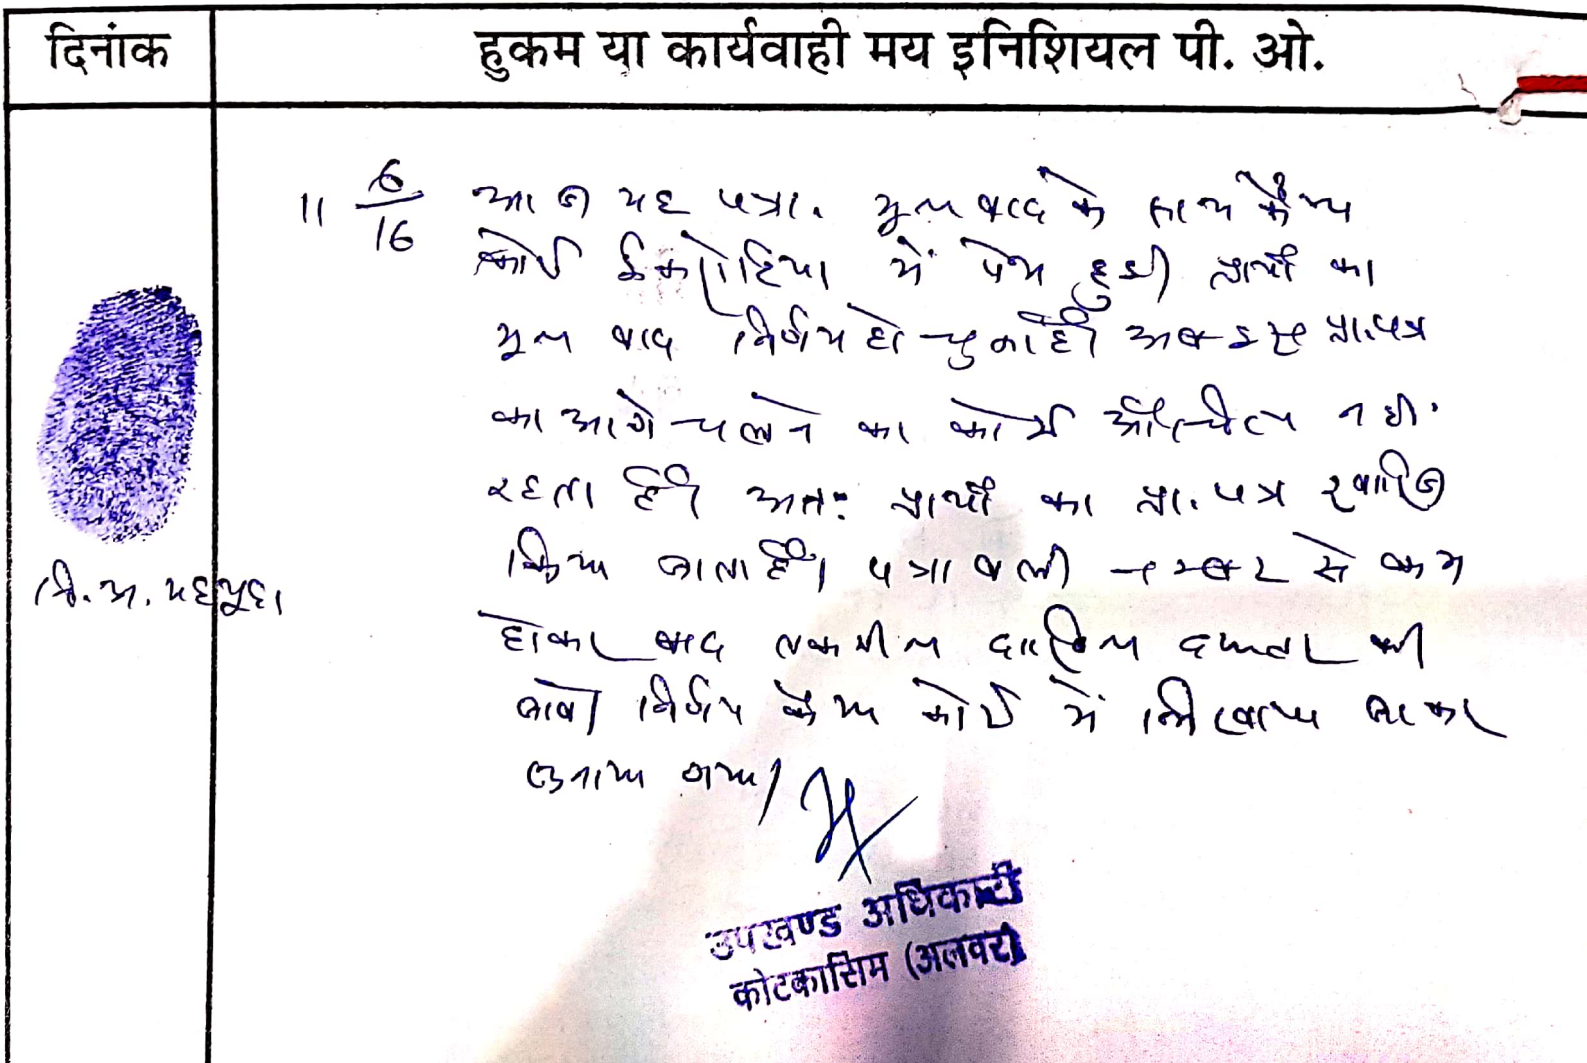 दिनांक
हुकम या कार्यवाही मय इनिशियल पी. ओ.
11 6/16 आज यह पत्रा. मूल वाद के साथ कैम्प
कोर्ट में पेश हुई। प्रार्थी का
मूल वाद निर्णय हो चुका है। अब इस प्रा.पत्र
का आगे चलने का कोई औचित्य नही
रहता है। अतः प्रार्थी का प्रा. पत्र खारिज
किया जाता है। पत्रावली नम्बर से कम
होकर बाद तकमील दाखिल दफ्तर की
जावे। निर्णय कैम्प कोर्ट में लिखाया जाकर
सुनाया गया।
नि. अ.
उपखण्ड अधिकारी
कोटकासिम (अलवर)